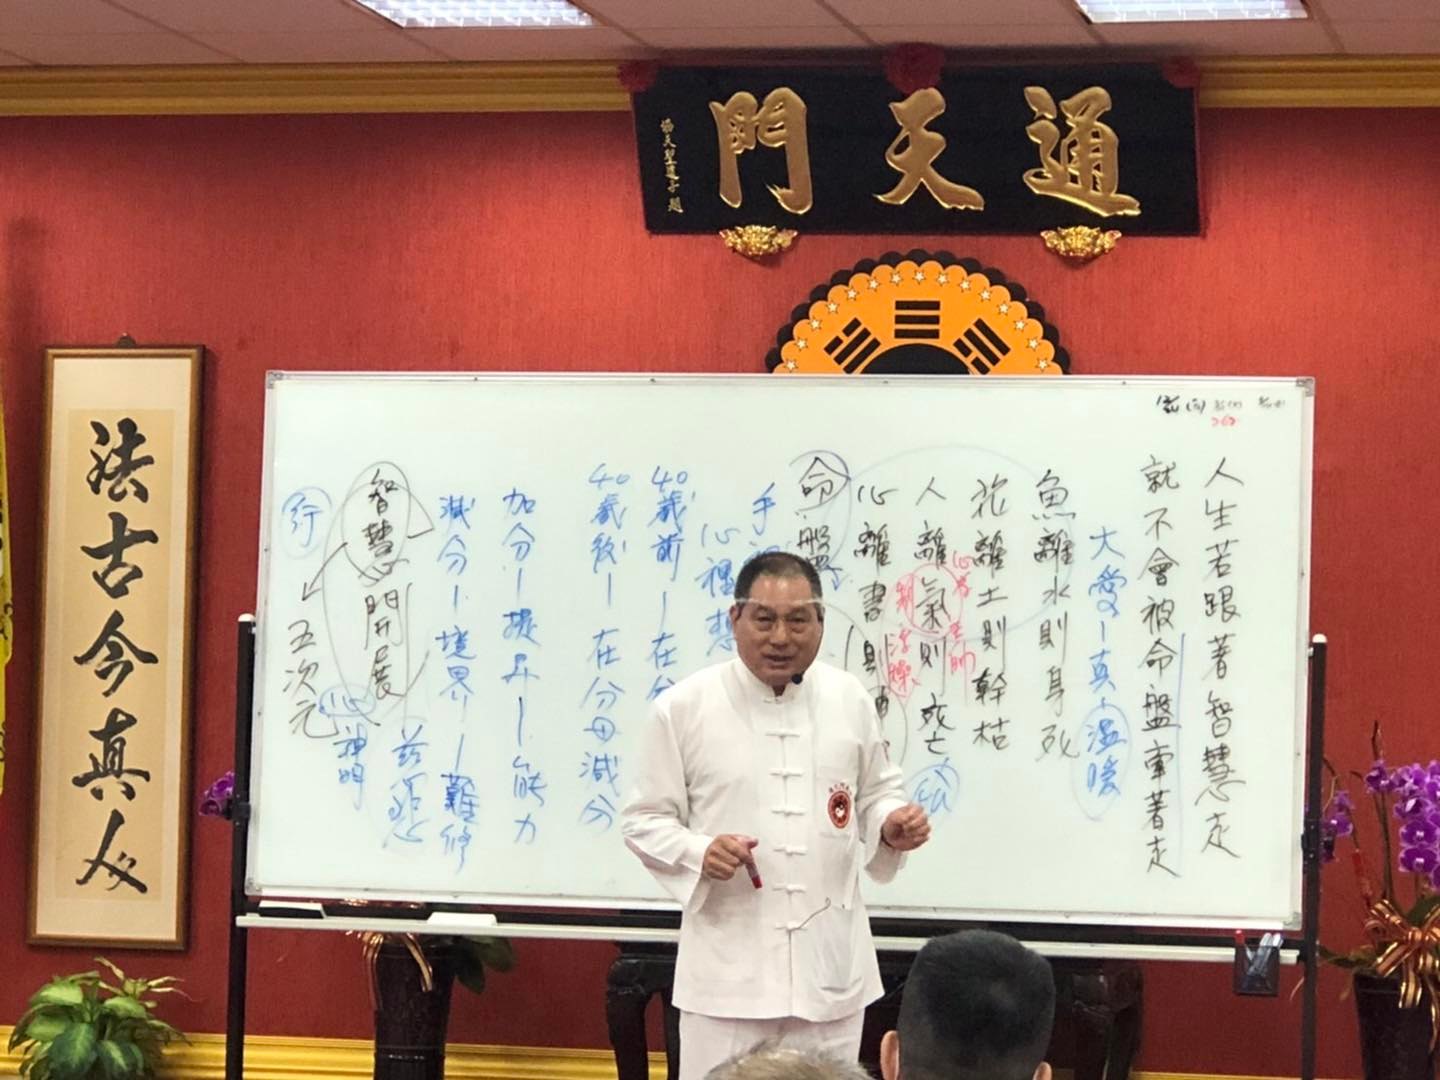 通天門
法古今真人
人生若跟著智慧走
就不會被命盤牽著走
大愛－真－溫暖
魚離水則身死
花離土則幹枯
人離氣則死亡
心離書則
命盤
手
心想
40歲前－在分
40歲後－在分母減分
加分－提昇－能力
減分－境界－難修
智慧開展
慈悲
五次元
心神明
行